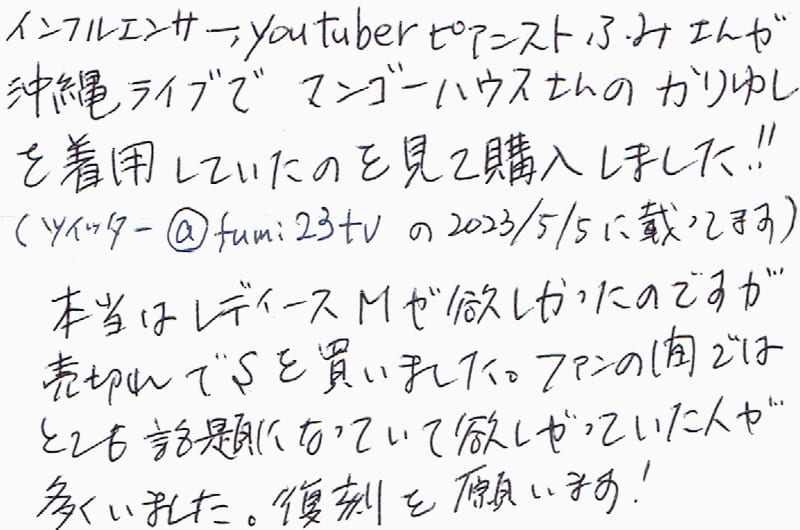 インフルエンサー、youtuberピアニストふみさんが
沖縄ライブで マンゴーハウスさんの かりゆし
を着用していたのを見て購入しました!!
(ツイッター@fumi23tv の2023/5/5に載ってます)
本当はレディースMが欲しかったのですが
売切れでSを買いました。ファンの間では
とても話題になっていて欲しがっていた人が
多くいました。復刻を願います!